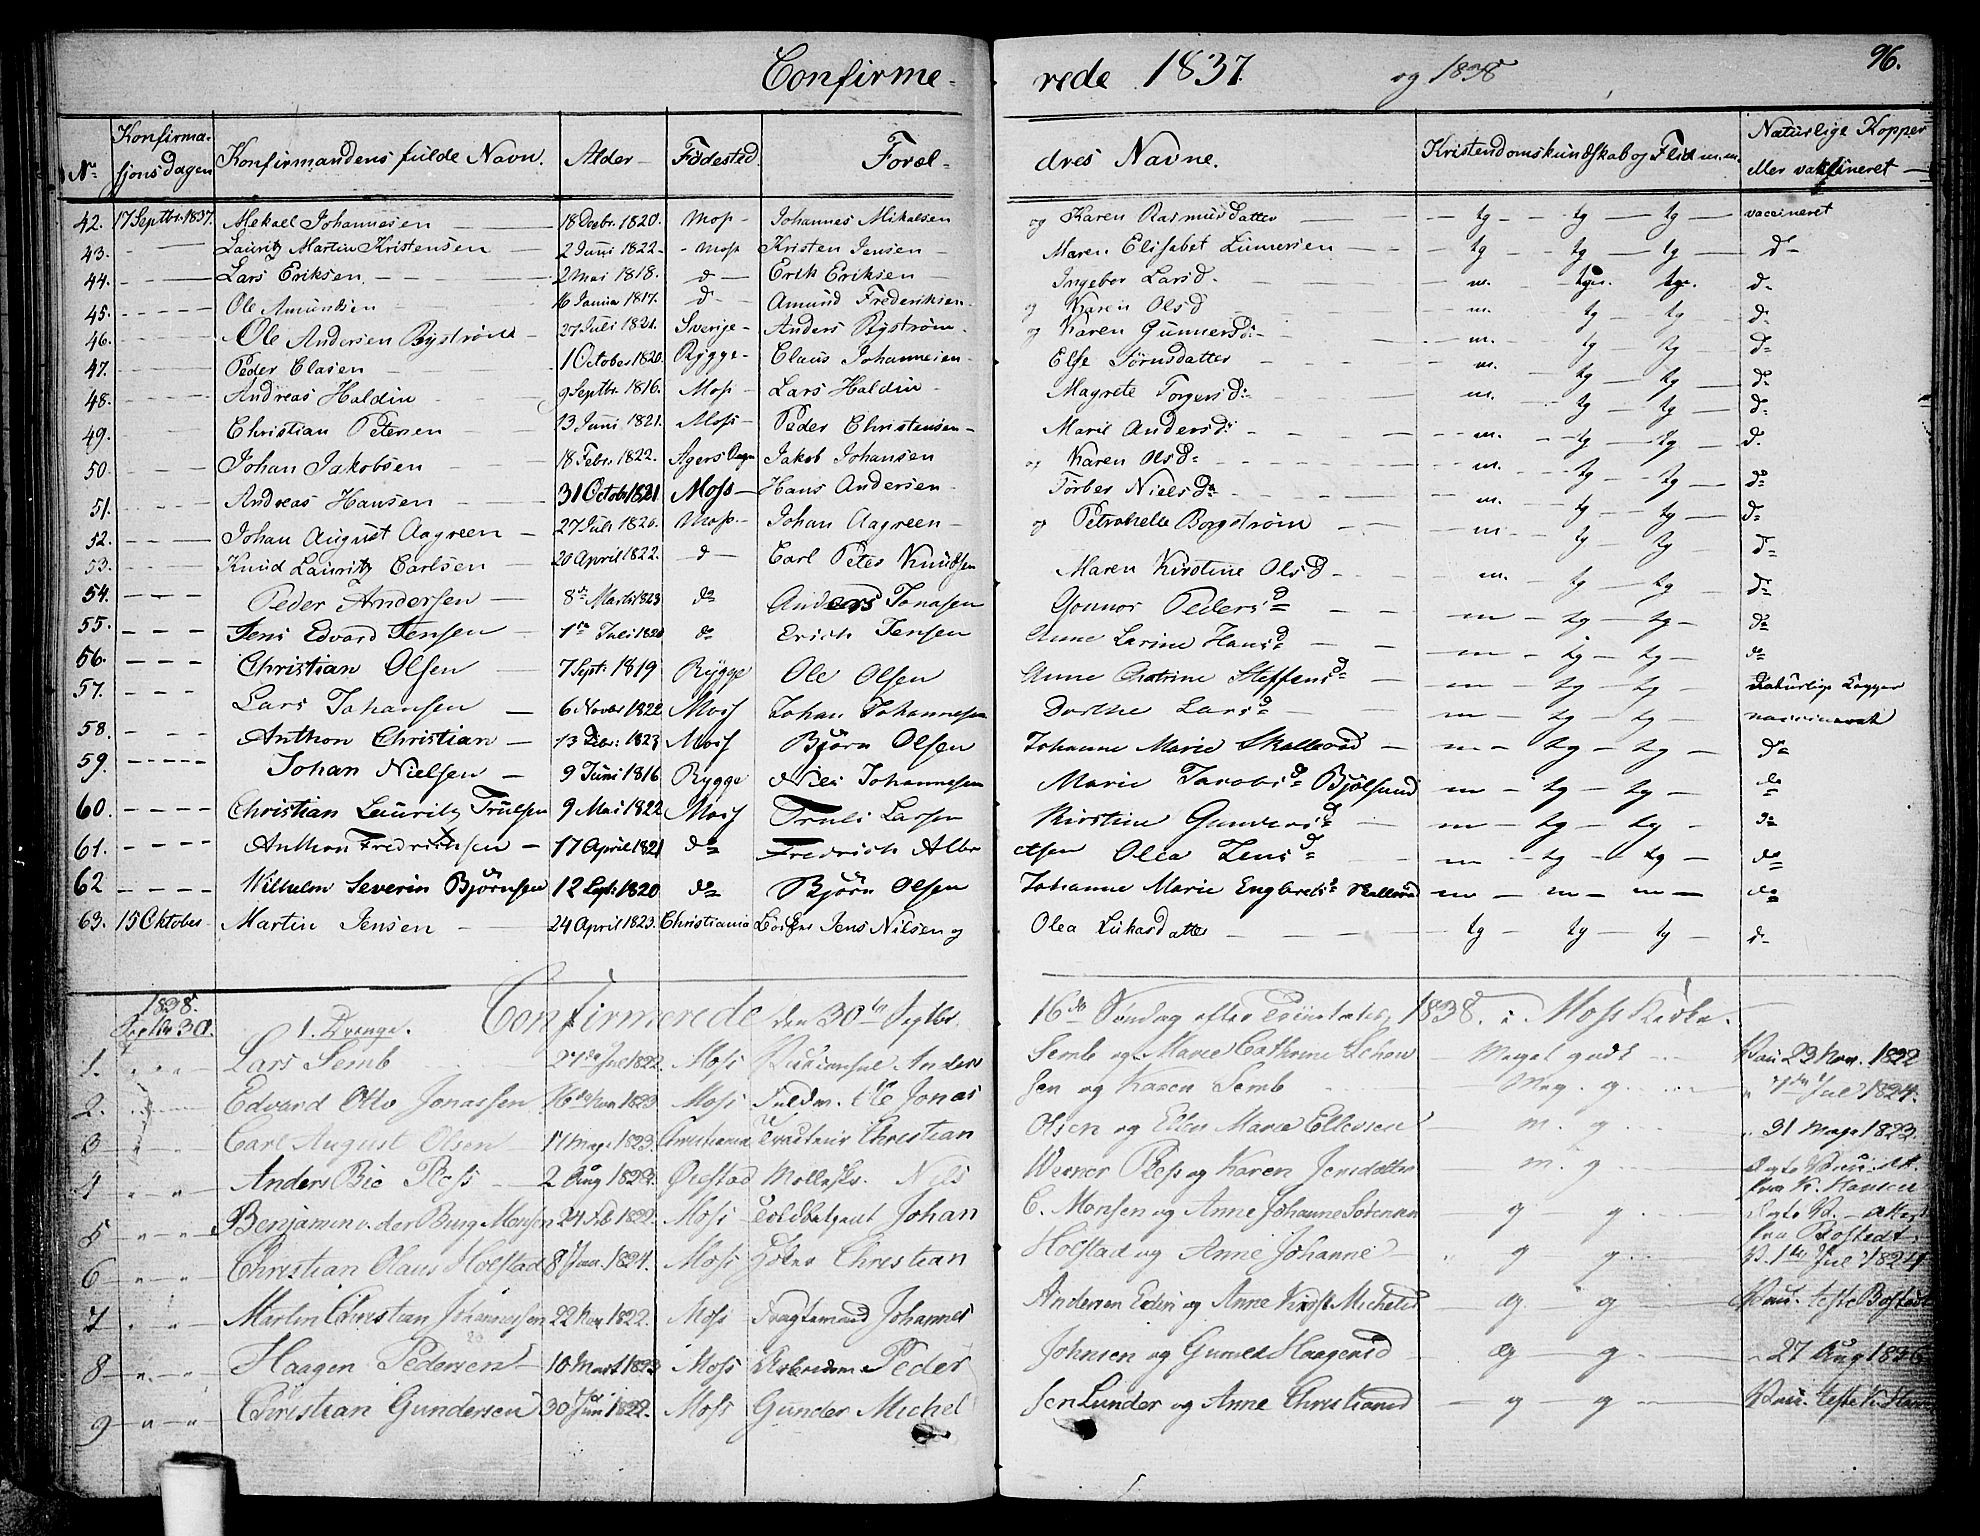 Confirmerede 1837. og 1838
96.
Nr Konfirmasjonsdagen Konfirmandens fulde Navn. Alder Fødested. Foreldres Navne. Kristendomskundskab og Flid m.m. Naturlige Kopper eller vakineret
42. 17 Septbr. 1837. Mekall Johannesen 18 Decbr. 1820. Moss Johannes Mikalsen og Karen Rasmusdatter tg tg tg vaccineret
43. Lauritz Martin Kristensen 2 Juni 1822. Moss Kristen Jensen Maren Elisabet Lumersen tg tg tg do
44. Lars Eriksen 2 Mai 1818. do Erik Eriksen Ingebor Larsd. m. tg. tg. do
45. Ole Amundsen 16 Janua 1817. do Amund Frederiksen og Karen Olsd m. tg tg do
46. Ole Andersen Bystrøm 27 Juli 1821. Sverige Anders Bystrøm og Karen Gunnersd: m. tg tg do
47. Peder Clasen 1 October 1820. Rygge Claus Johannesen Else Jørnsdatter m. tg tg do
48. Andreas Haldin 9 Septbr. 1816. Moss Lars Haldin Magrete Torgersd: m. tg tg do
49. Christian Petersen 13 Juni 1821. Moss Peder Christensen Marie Andersd: m. tg tg do
50. Johan Jakobsen 18 Febr. 1822. Agers Jakob Johansen og Karen Olsd m. tg tg do
51. Andreas Hansen 31 Octobr 1821 Moss Hans Andersen Tørber Nielsd m. tg tg do
52. Johan August Aagreen 27 Juli 1820. Moss Johan Aagreen og Petronelle Borgstrøm m tg tg do
53. Knud Lauritz Carlsen 20 April 1822. do Carl Peter Knudsen Maren Kirstine Olsd m. tg tg do
54. Peder Andersen 8de Marts 1823 do Anders Jonasen Gonnor Pedersd m tg tg do
55. Jens Edvard Jensen 1ste Juli 1820 do Erich Jensen Anne Larine Hansd m tg tg do
56. Christian Olsen 7 Sept: 1819 Rygge Ole Olsen Anne Chatrine Steffensd m tg tg Naturlige Kopper
57. Lars Johansen 6 Novbr 1822 Moss Johan Johannesen Dorthe Larsd m tg tg vaccineret
58. Anthon Christian 13 1823 Moss Bjørn Olsen Johanne Marie Skallerød m tg tg do
59. Johan Nielsen 9 Juni 1816 Rygge Nils Johannesen Marie Jacobsd Bjølsund m tg tg do
60. Christian Lauritz Truelsen 9 Mai 1822 Moss Truls Larsen Kirstine Gundersd m tg tg do
61. Anthon Fredriksen 17 April 1821 do Fredrich Albretsen Olea Jensd m tg tg do
62 Wilhelm Severin Bjørnsen 12 Sept: 1820 do Bjørn Olsen Johanne Marie Engbretsd Skallerød m m m do
63. 15 Oktober Martin Jensen 24 April 1823. Christiania Jens Nilsen og Olea Lukasdatter tg tg tg do
1838. Septbr 30. 1. Drenge. Confirmerede den 30te Septbr. 16de Søndag efter Trinitatis, 1838. i Moss Kirke.
1. Lars Semb 27de Jul 1822. Moss Anders Semb og Marie Cathrine Schou Meget godt Vac. 23 Nov. 1822
2. Edvard Otto Jonassen 16de Nov 1823 Moss Fuldm. Ole Jonassen og Karen Semb Meg. g. 7de Jul 1824.
3 Carl August Olsen 17 Mage 1823. Christiania Christian Olsen og Ellen Marie Ellevsen m. g. 31 Mage 1823.
4 Anders Bie Pless 2 Aug 1823. Ørestad Nils Werner Pless og Karen Jensdatter m. g. fra K. Hansen
5 Benjamin v. der Burg Monsen 24 Feb 1822. Moss Toldbetjent Johan C. Monsen og Anne Johanne Sørensen g g fra Bostedt.
6 Christian Olaus Holstad 8 Jan. 1824. Moss Christian Holstad og Anne Johanne g g V. 1te Jul 1824
7 Martin Christian Johannessen 22 Nov 1822. Moss Fragtemand Johannes Andersen Eden og Anne Kirst. Michelsd g g Vac. teste Bostedt
8 Haagen Pedersen 10 Mart 1823 Moss Peder Johnsen og Gunild Haagensd g g 27 Aug 1836
9 Christian Gundersen 30 Jun 1822. Moss Gunder Michelsen Lunder og Anne Christiansd g g Vac. teste K. Hansen